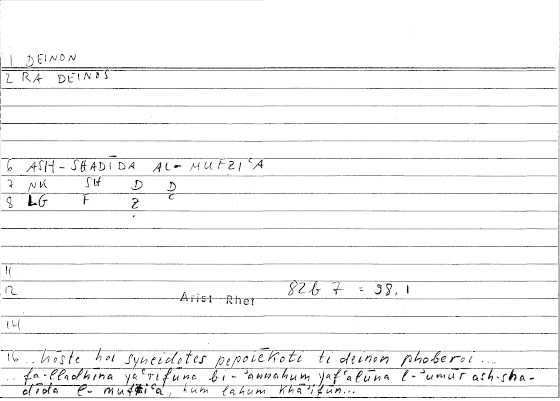 1 DEINON
2 RA DEINOS
6 ASH-SHADĪDA AL-MUFZIʿA
7 NK SH D D
8 LG F Z C
11
12 Arist Rhet 82b 7 = 98.1
14
16 ..hōste hoi syneidotes pepoiēkoti ti deinon phoberoi...
.. fa-lladhīna yaʿrifūna bi-'annahum yafʿalūna l-'umūr ash-sha-
dīda l- mufziʿa, hum lahum khā'ifūn...